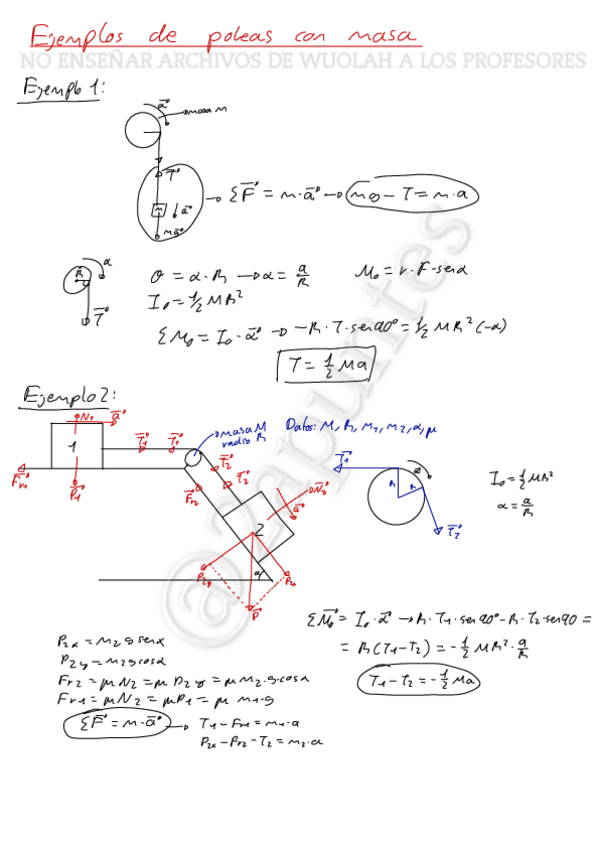 Ejemplos de poleas con masa
NO ENSEÑAR ARCHIVOS DE WUOLAH A LOS PROFESORES
Ejemplo 1:
a⃗
masa M
T⃗
ΣF⃗ = m·a⃗ → mg - T = m·a
m
a⃗
α
R
T⃗
a = α·R → α = a/R
M₀ = r·F·senα
I₀ = 1/2 MR²
ΣM₀ = I₀·α⃗ → -R·T·sen90° = 1/2 MR²(-α)
T = 1/2 Ma
Ejemplo 2:
N⃗1
a⃗
masa M
radio R
Datos: M, R, m1, m2, α, μ
1
T⃗1
T⃗1
T⃗2
T⃗2
F⃗r1
P⃗1
F⃗r2
N⃗2
a⃗
2
α
P2y
P2x
P⃗
T⃗1
R
R
T⃗2
I₀ = 1/2 MR²
α = a/R
ΣM⃗₀ = I₀·α⃗ → R·T1·sen90° - R·T2·sen90 =
= R(T1-T2) = -1/2 MR²·a/R
T1-T2 = -1/2 Ma
P2x = m2 g senα
P2y = m2 g cosα
Fr2 = μN2 = μ P2y = μ m2·g·cosα
Fr1 = μN2 = μP1 = μ m1·g
ΣF⃗ = m·a⃗ → T1 - Fr1 = m1·a
P2x - Fr2 - T2 = m2·a
@2apuntes